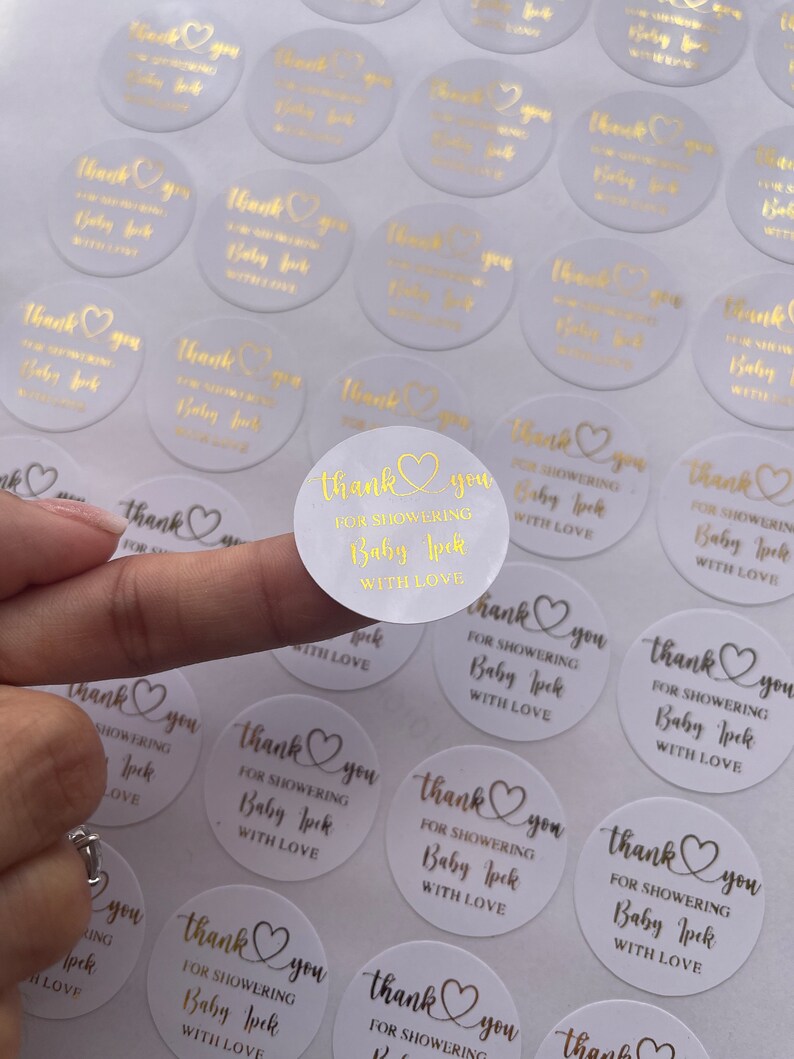 thank you
FOR SHOWERING
Baby Ipek
WITH LOVE